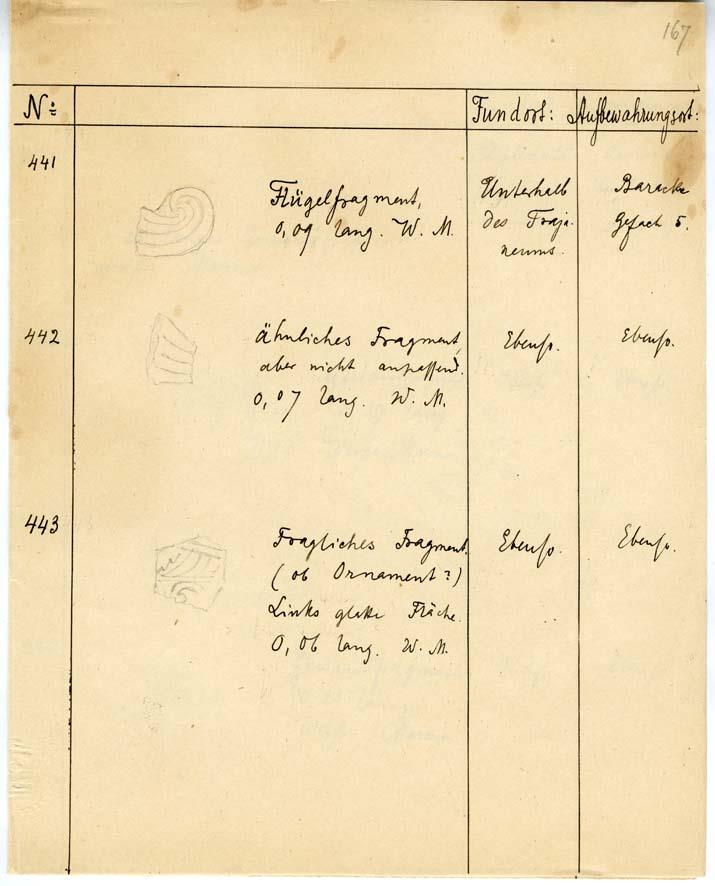 167
No: Fundort: Aufbewahrungsort:
441
Flügelfragment,
0,09 lang. W. M.
Unterhalb
des Traja-
neums.
Baracke
Gefach 5.
442
ähnliches Fragment,
aber nicht anpassend.
0,07 lang. W. M.
Ebenso.
Ebenso.
443
Fragliches Fragment.
(ob Ornament?)
Links glatte Fläche.
0,06 lang. W. M.
Ebenso.
Ebenso.